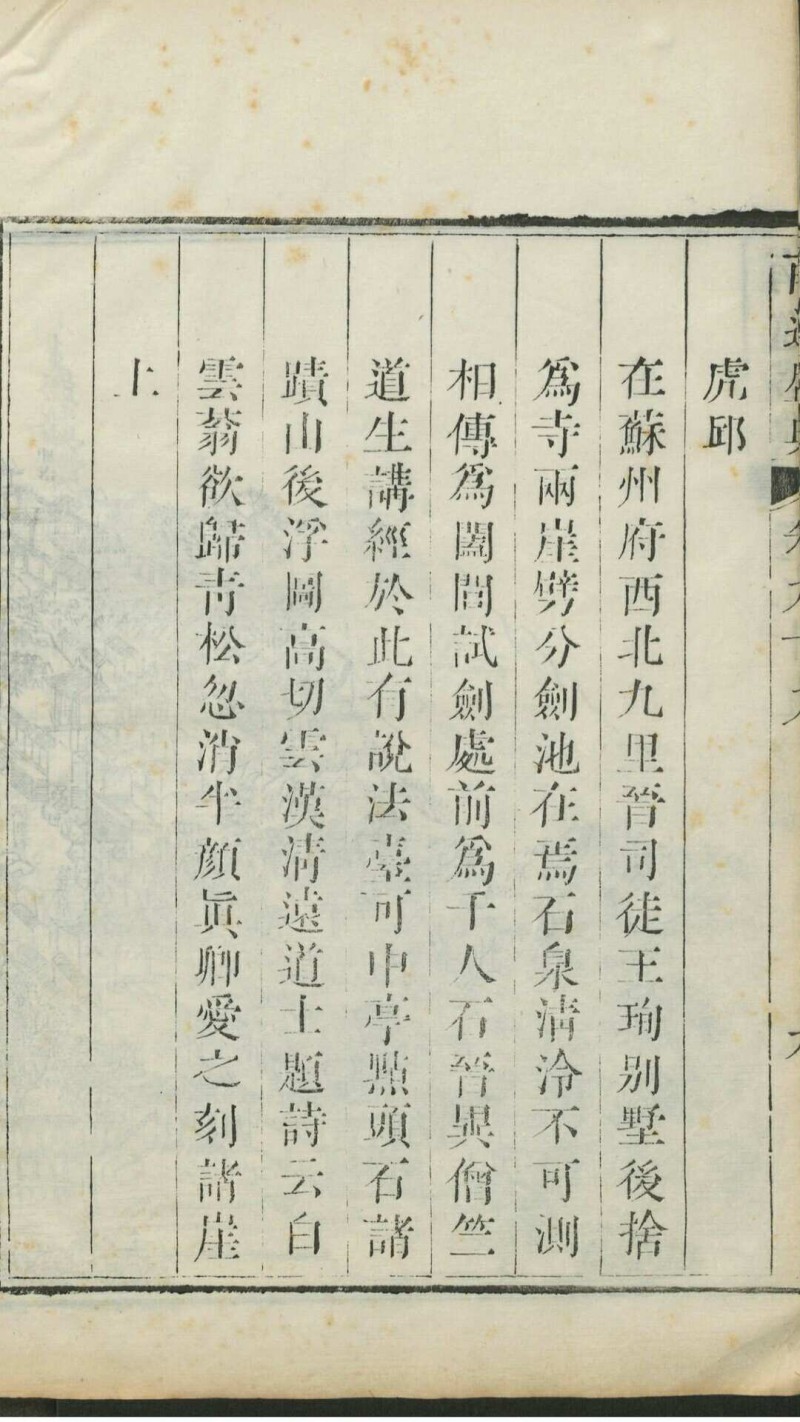 南巡盛典
卷九十九
虎邱
在蘇州府西北九里晉司徒王珣别墅後捨
爲寺兩崖劈分劍池在焉石泉清泠不可測
相傳爲闔閭試劍處前爲千人石晉異僧竺
道生講經於此有說法臺可中亭點頭石諸
蹟山後浮圖高切雲漢清遠道士題詩云白
雲蓊欲歸青松忽消半顔眞卿愛之刻諸崖
上